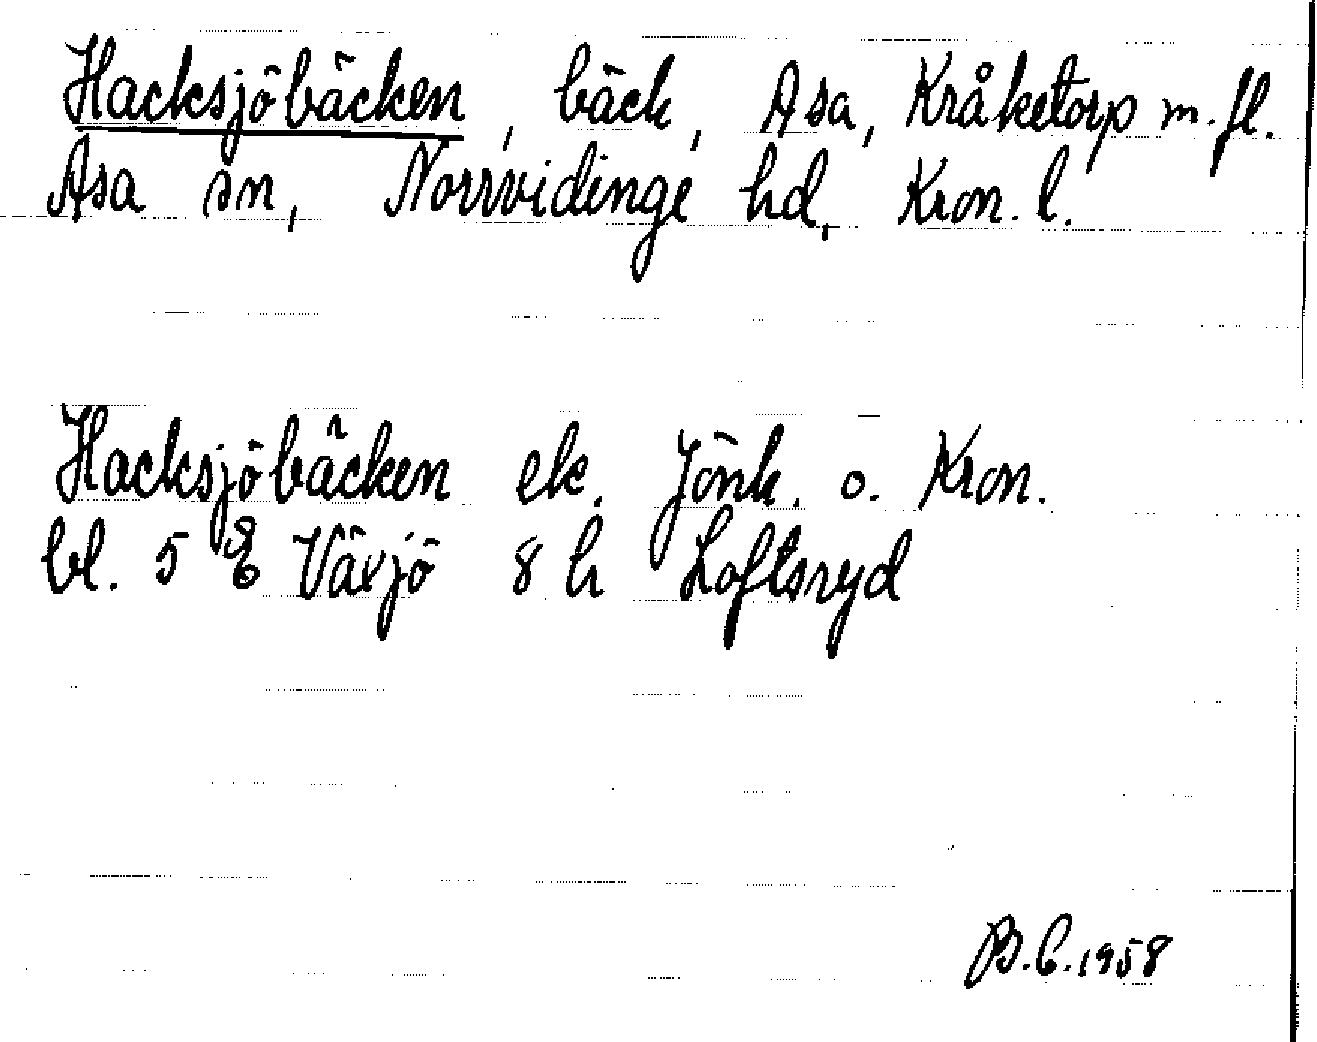 Hacksjöbäcken, bäck, Asa, Kråketorp m. fl.
Asa sn, Norrvidinge hd, Kron. l.
Hacksjöbäcken ek. Jönk. o. Kron.
bl. 5 Växjö 8 h Loftsryd
B.C. 1958